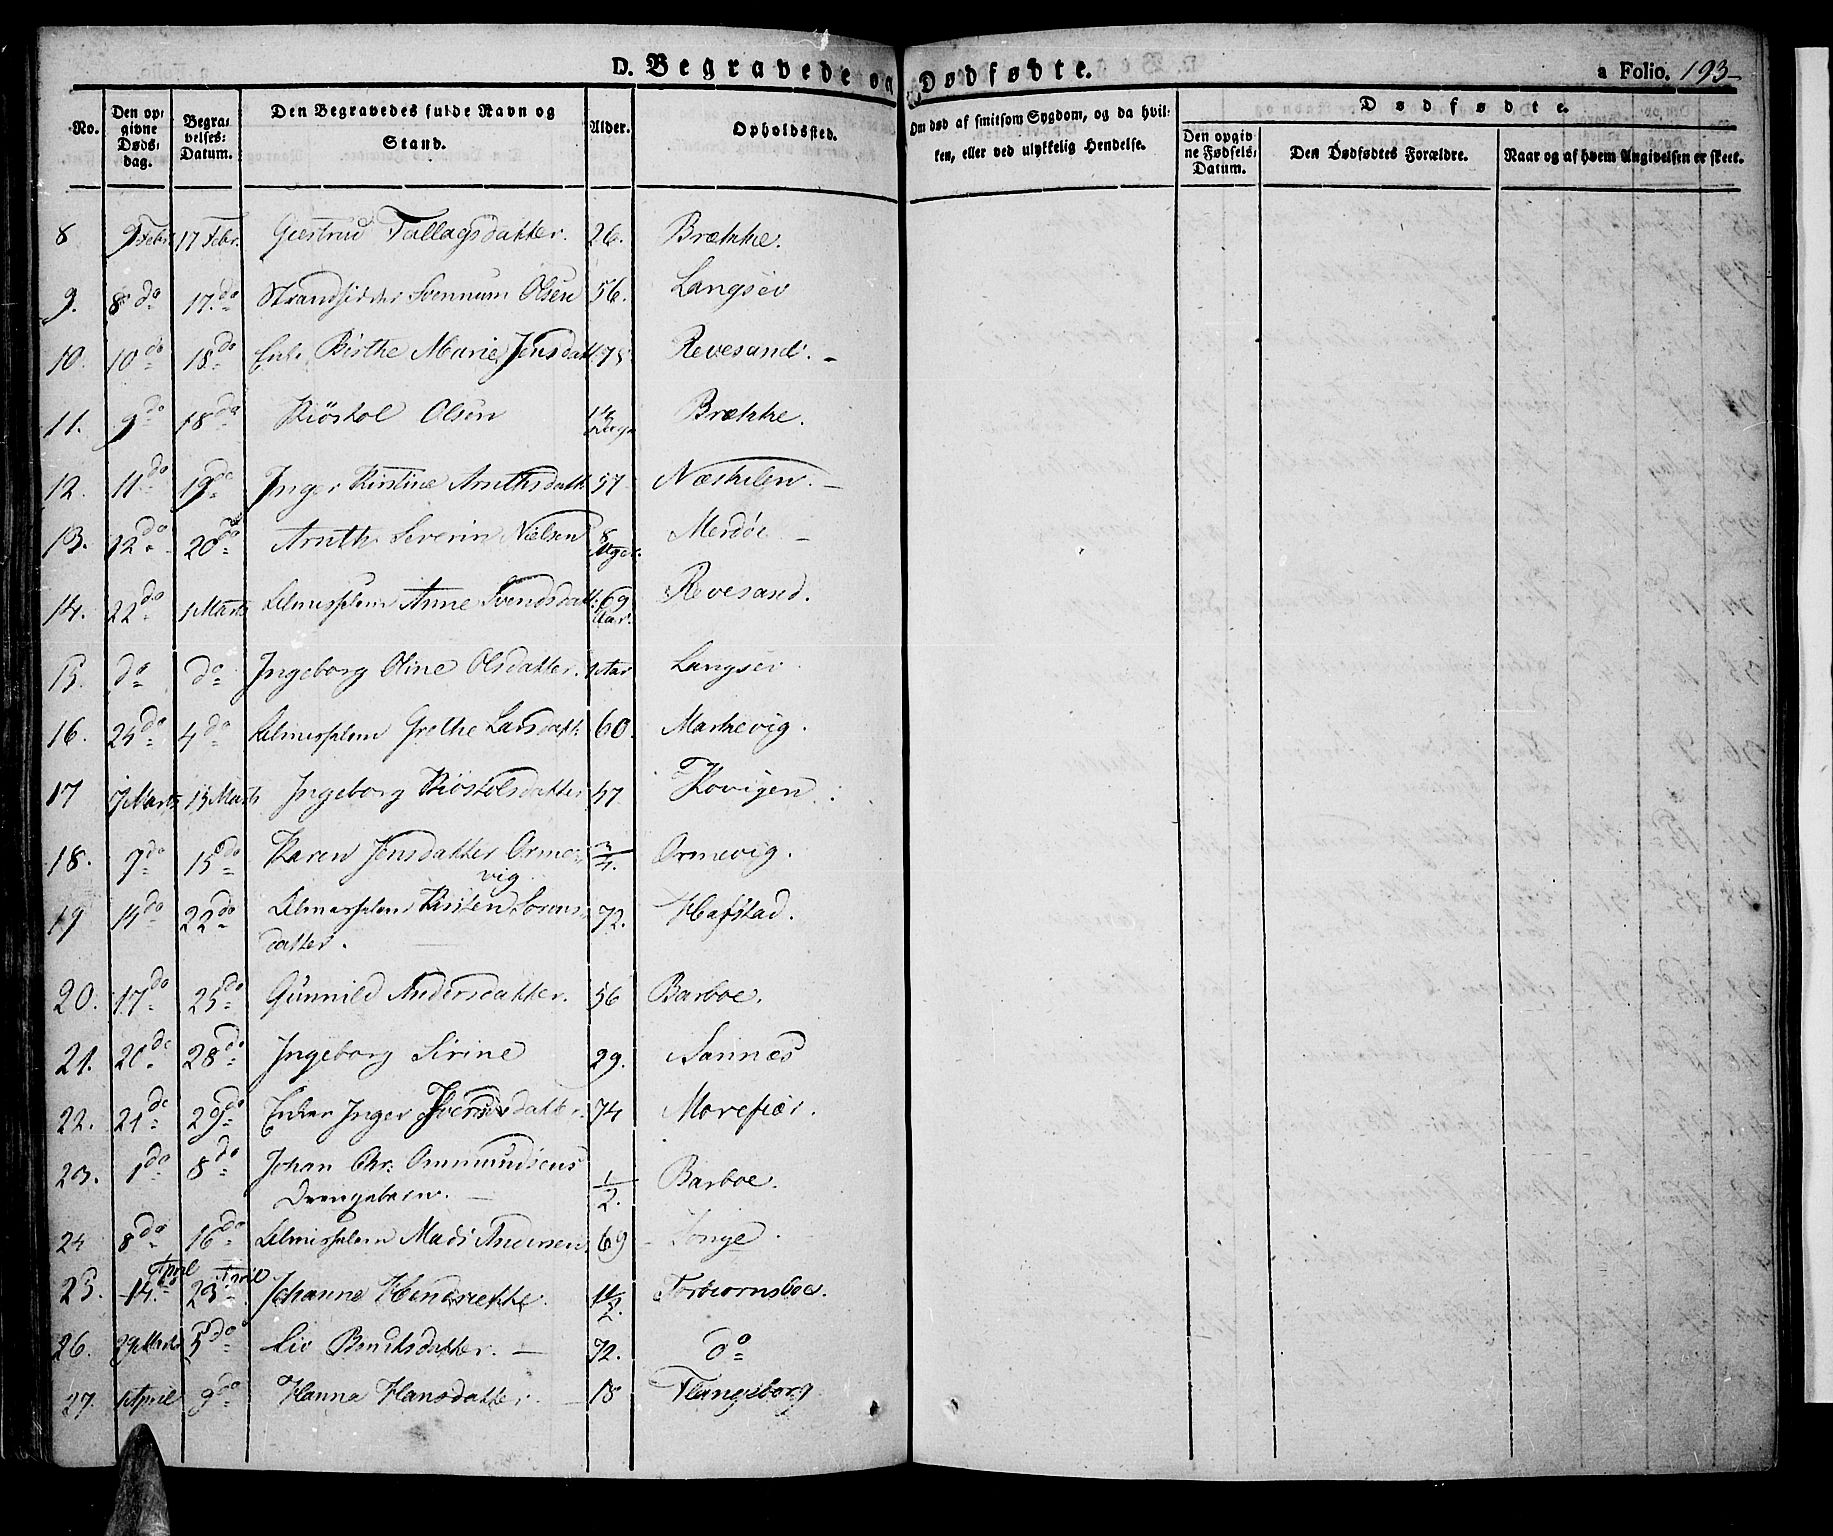 D. Begravede og Dødfødte.
a Folio. 193
No.
Den op-
givne
Døds-
dag.
Begra-
velses-
Datum.
Den Begravedes fulde Navn og
Stand.
Alder.
Opholdssted.
Om død af smitsom Sygdom, og da hvil-
ken, eller ved ulykkelig Hendelse.
Dødfødte.
Den opgiv-
ne Fødsels-
Datum.
Den Dødfødtes Forældre.
Naar og af hvem Angivelsen er skeet.
8 9 Febr 17 Febr. Giertrud Tallagsdatter. 26. Brække.
9. 8 do 17. do Strandsidder Svennum Olsen 56. Langsev
10. 10 do 18 do Enke Birthe Marie Jensdatt 75 Revesand. -
11. 9 do 18 do Kiøstol Olsen Brække.
12. 11 do 19 do Inger Kirstine Arnthsdatt 57 Næskilen. -
13. 12 do 20 do Arnth Severin Nielsen 8 Mger. Merdøe -
14. 22 do 1 Marts Lelmisslem Anne Svendsdatt. 69 Aar. Revesand.
15. do do Ingeborg Oline Olsdatter. 1 Aar Langsev
16. 25 do 4 do Lelmisslem Grethe Larsdatt. 60. Markevig.
17 7 Marts 15 Marts Ingeborg Kiøstolsdatter 57
18. 7 do 15 do Karen Jensdatter Orme-
vig 3/4. Ormevig.
19 14 do 22 do Lelmisslem Kirsten Sørens-
datter. 72. Hafstad.
20. 17 do 25 do Gunnild Andersdatter. 56 Barboe.
21. 20 do 28 do Ingeborg Sirine 29. Sannæs
22. 21 do 29 do Enken Inger Iversdatter. 74 Morefiær.
23. 1 do 8 do Johan Chr. Ommundsens
Drengebarn. - 1/2. Barboe.
24 8 do 16 do Lelmisslem Mads Andersen 69 Longe.
25. 14 April 23 April Johanne Hendrikke. Torbiørnsboe.
26. 29 Marts 5 do Liv Bentsdatter. - 72. do
27. 1 April 9 do Hanna Hansdatter. 18 Flangeborg